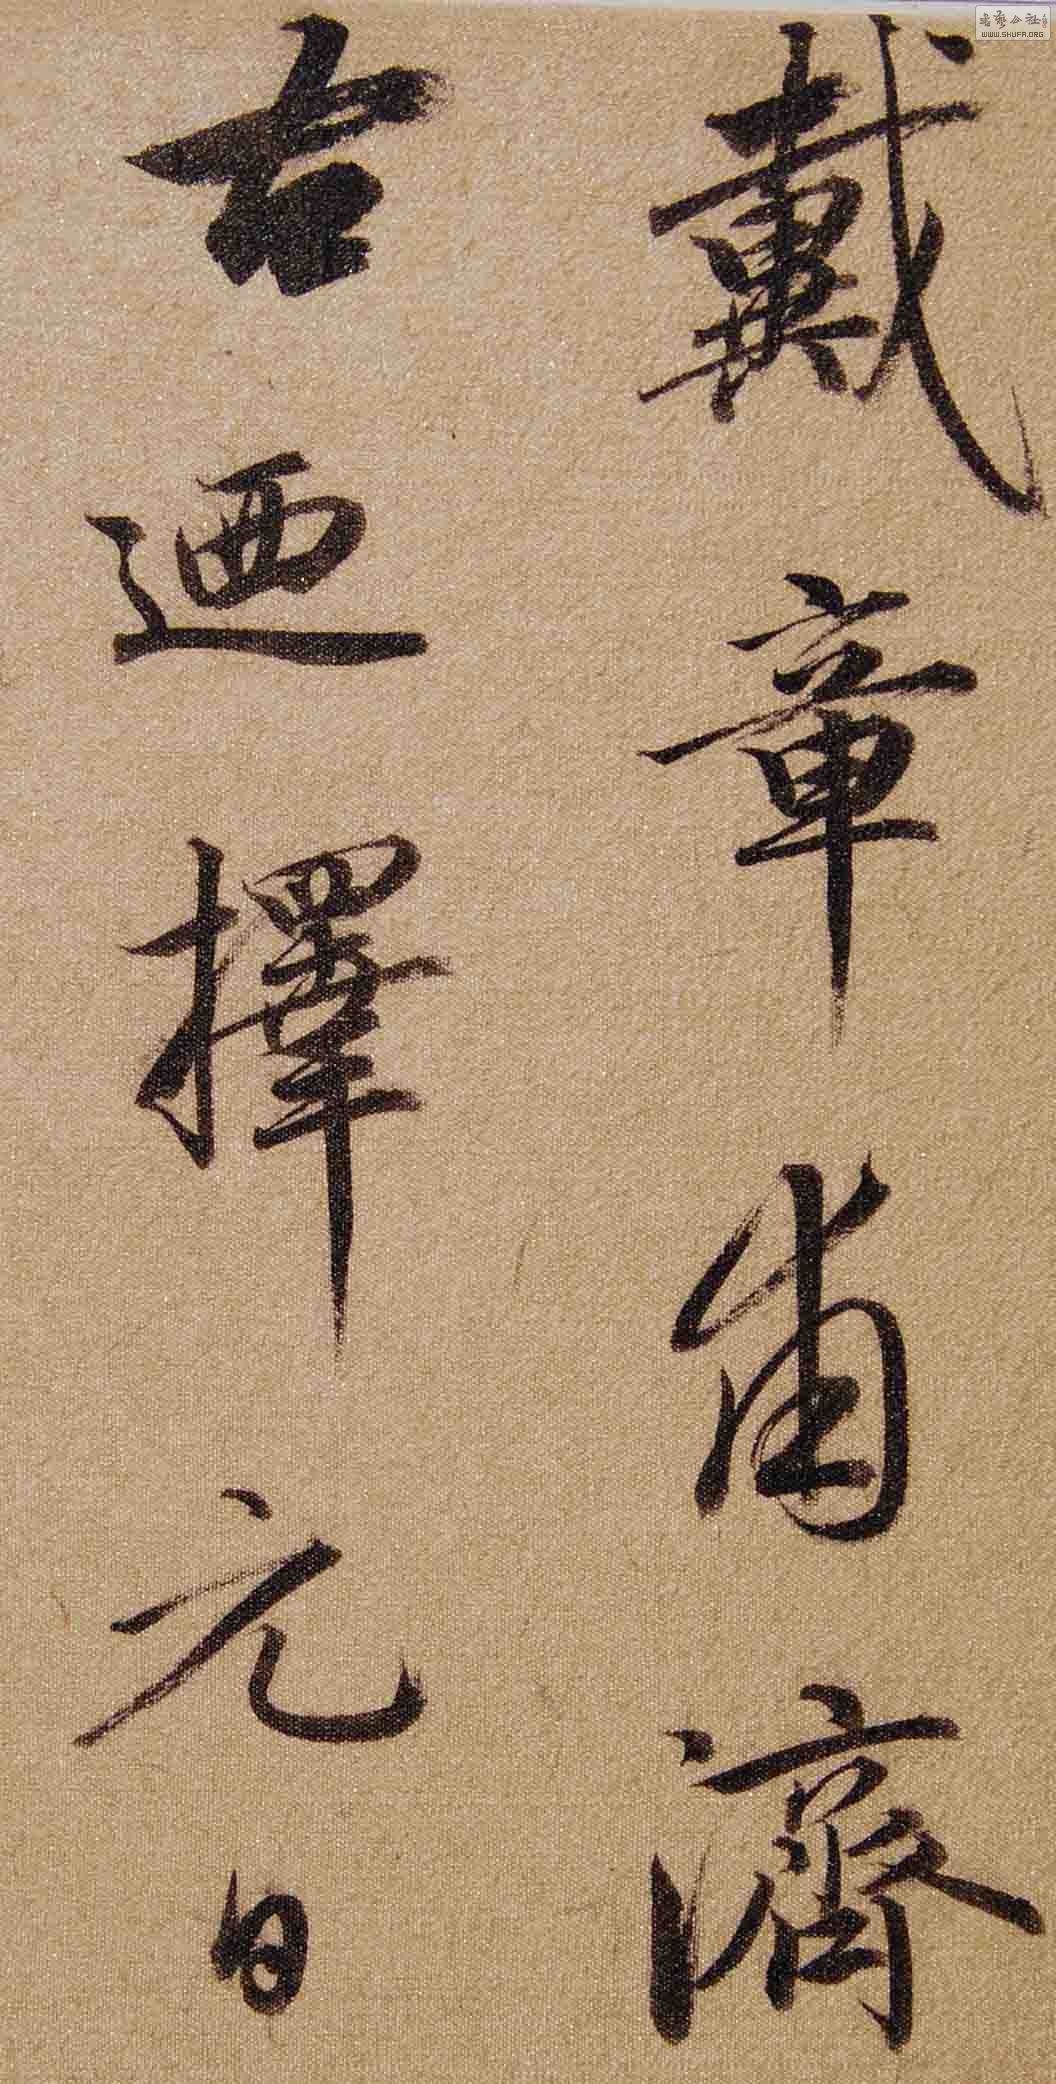 戴章甫濟
古迺擇元日
书艺公社
WWW.SHUFA.ORG